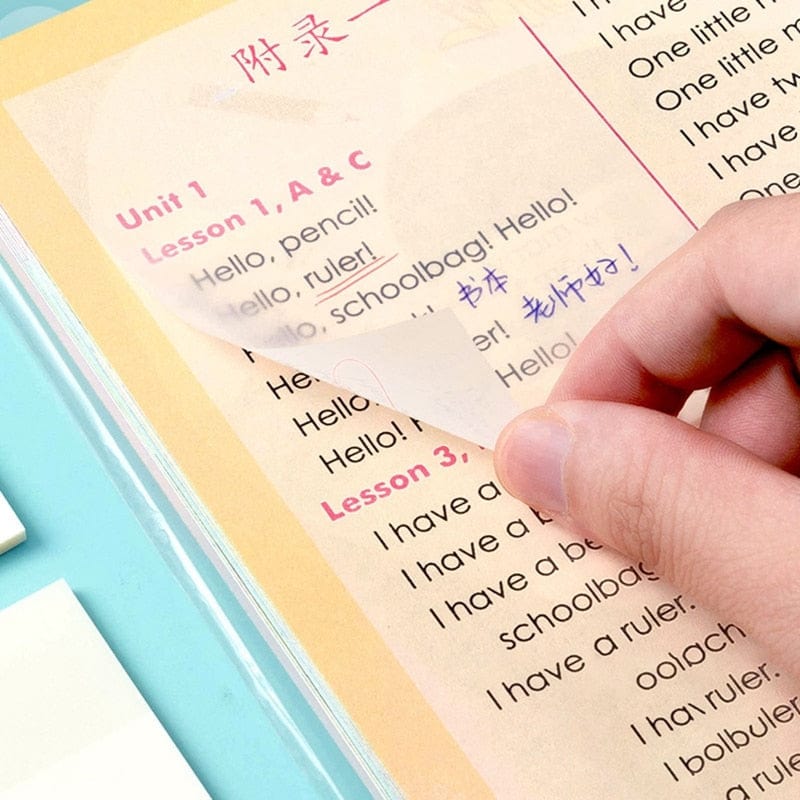 附录一
Unit 1
Lesson 1, A & C
Hello, pencil!
Hello, ruler!
Hello, schoolbag! Hello!
书本
er! 老师好!
Hello!
Hello
Hello!
Lesson 3,
I have a
I have a b
I have a be
schoolbag
I have a ruler.
ooloch
I ha ruler.
I bolbuler
a rule
I have
One little
One little m
I have tw
I have
One